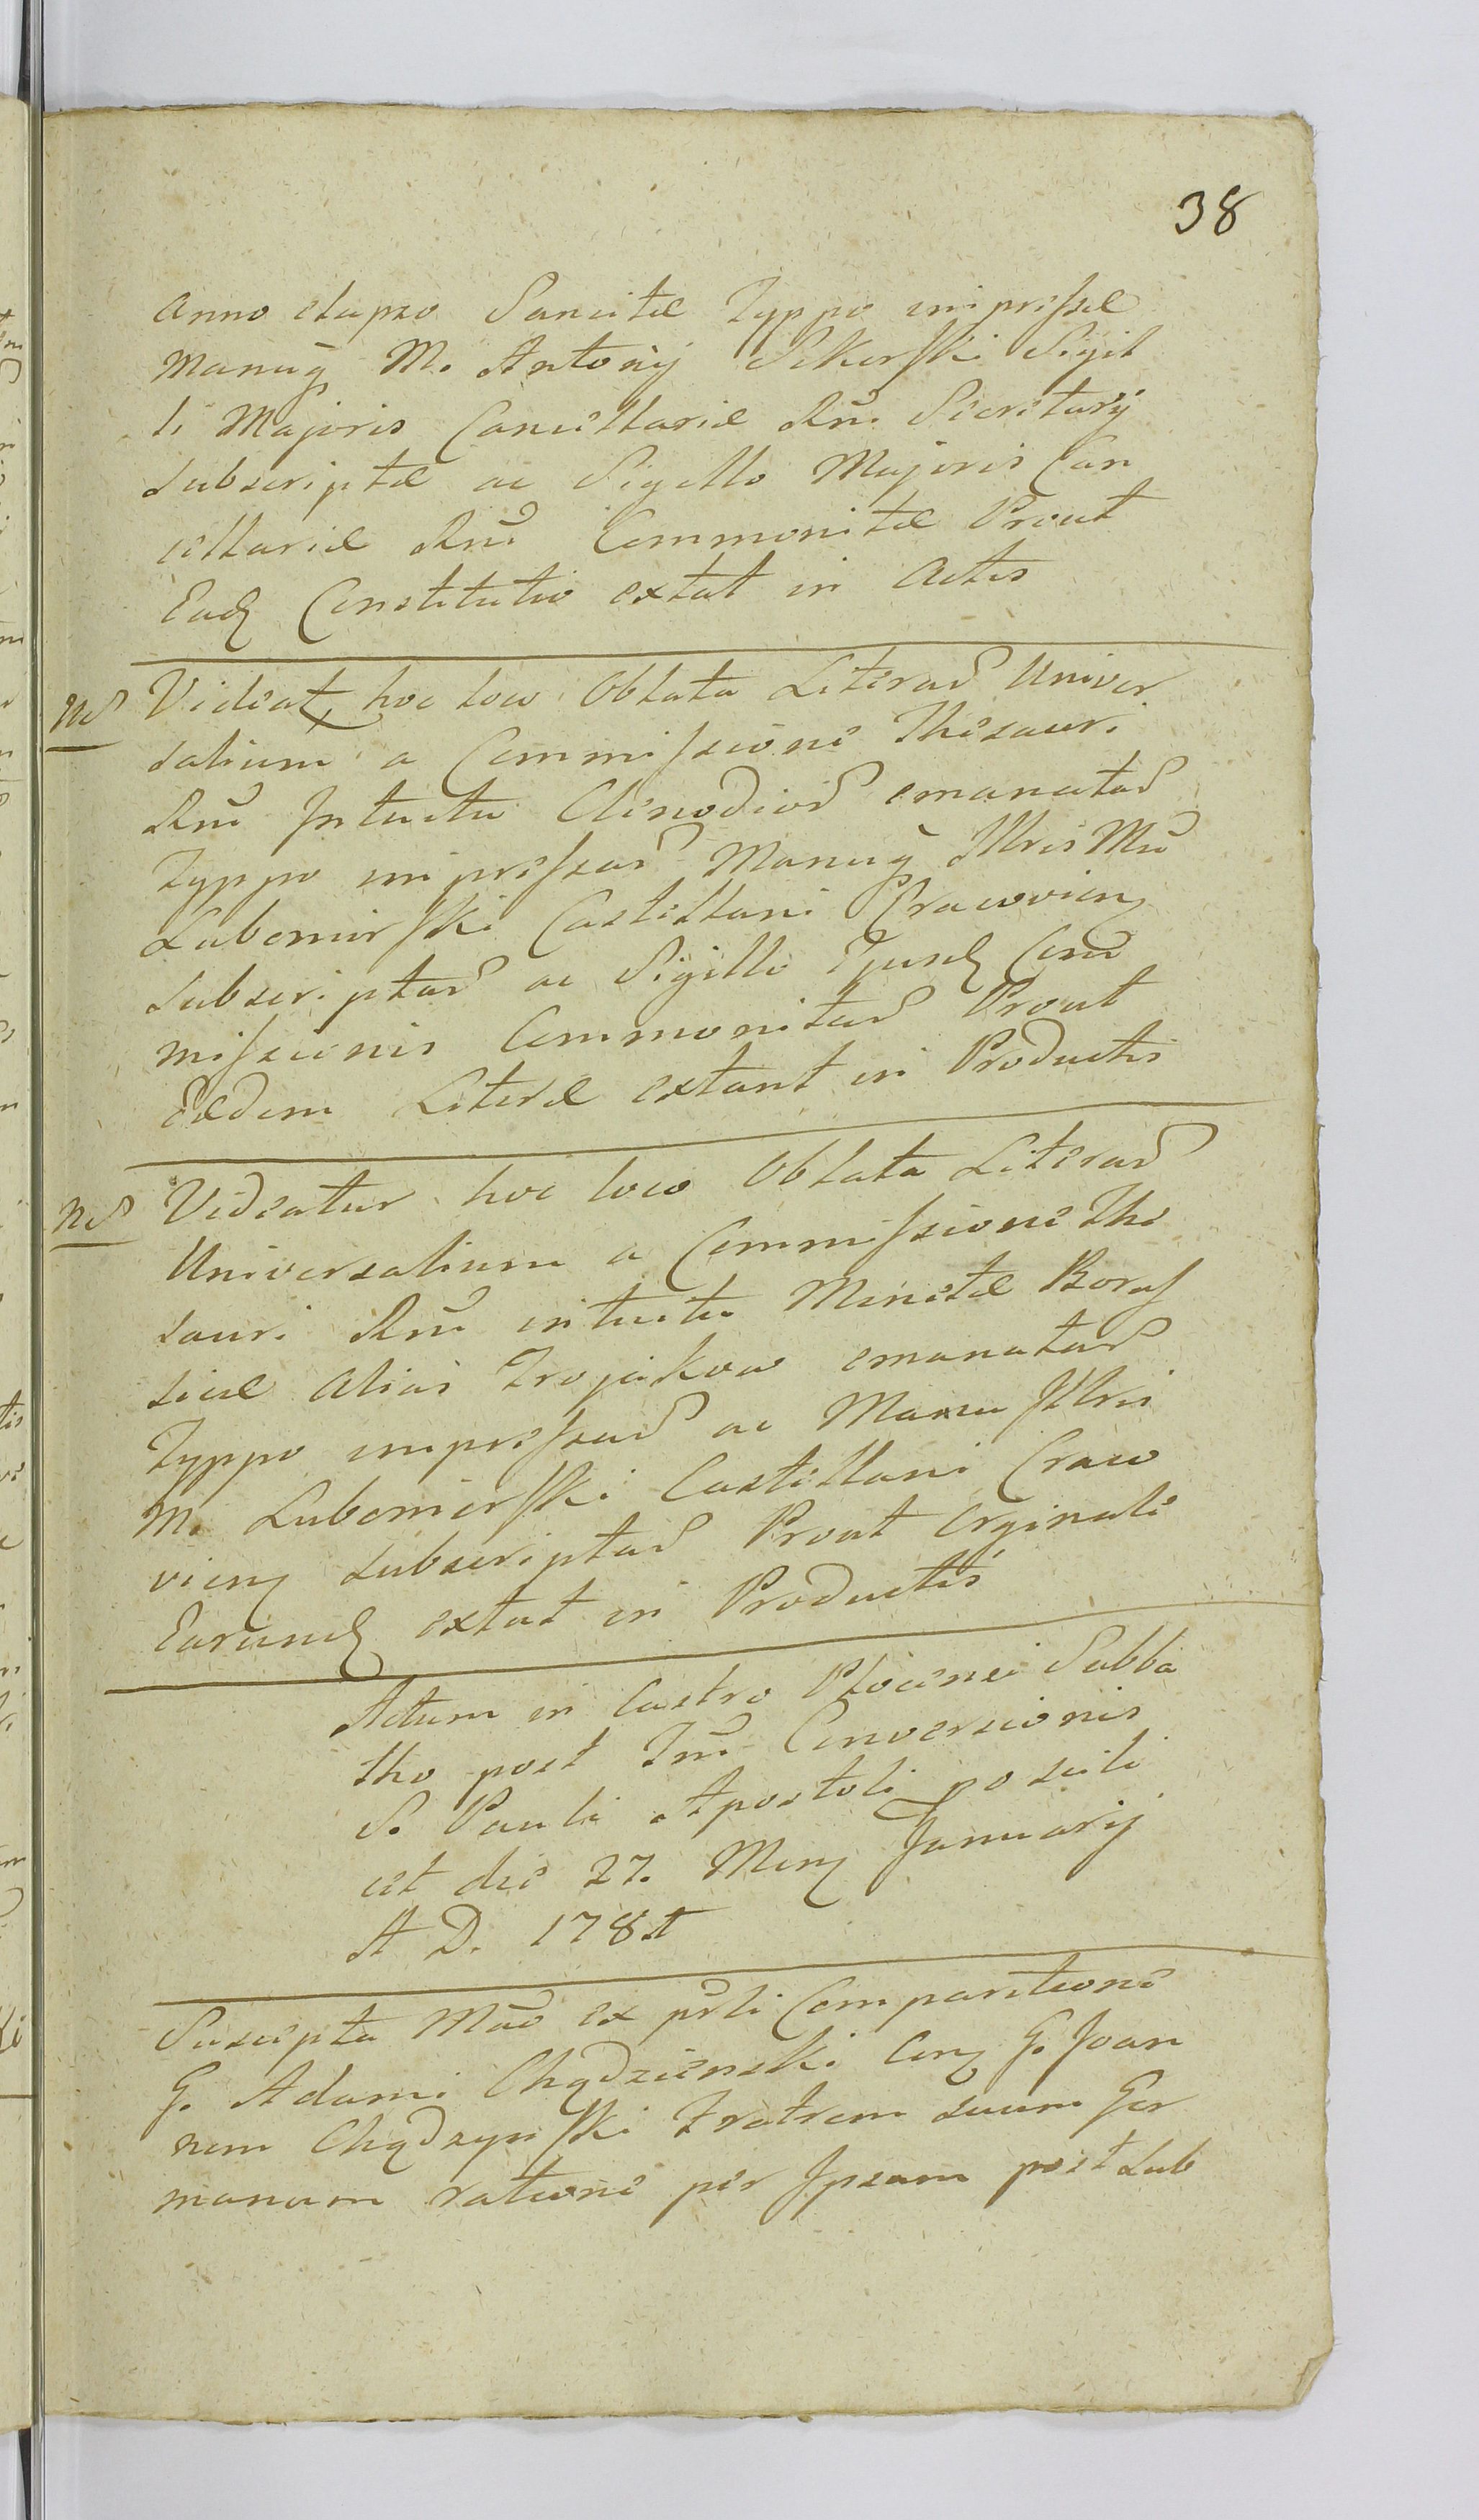 38
anno elapso Sancitæ Typpo impressæ
manuq M. Antonij Sikorski Sigil
li Majoris Cancellariæ Rni Secretarij
subscriptæ ac Sigillo Majoris Can
cellariæ Rni Communitæ Prout
Ead Constitutio extat in Actis
NB Videat hoc loco Oblata Literar Univer
salium a Commissione Thesauri
Rni Intuitu Clenodior emanatar
Typpo impressar Manuq Illris Mci
Lubomirski Castellani Cracovien
subscriptar ac Sigillo Ejusd Com
missionis Communitar Prout
Eædem Literæ extant in Productis
NB Videatur hoc loco Oblata Literar
Universalium a Commissione The
sauri Rni intuitu Monetæ Borus
sicæ alias Trojakow emanatar
Typpo impressar ac Manu Illris
M. Lubomirski Castellani Craco
vien subscriptar Prout Orginale
Earund extat in Productis
Actum in Castro Plocensi Sabba
tho post Fm Conversionis
S. Pauli Apostoli proximo scili
cet die 27. Men Januarij
A D. 1781
Suscepta Mão ex psli Comparitione
G. Adami Chądzienski con G. Joan
nem Chądzynski Fratrem suum Ger
manum ratione per Ipsum post sub